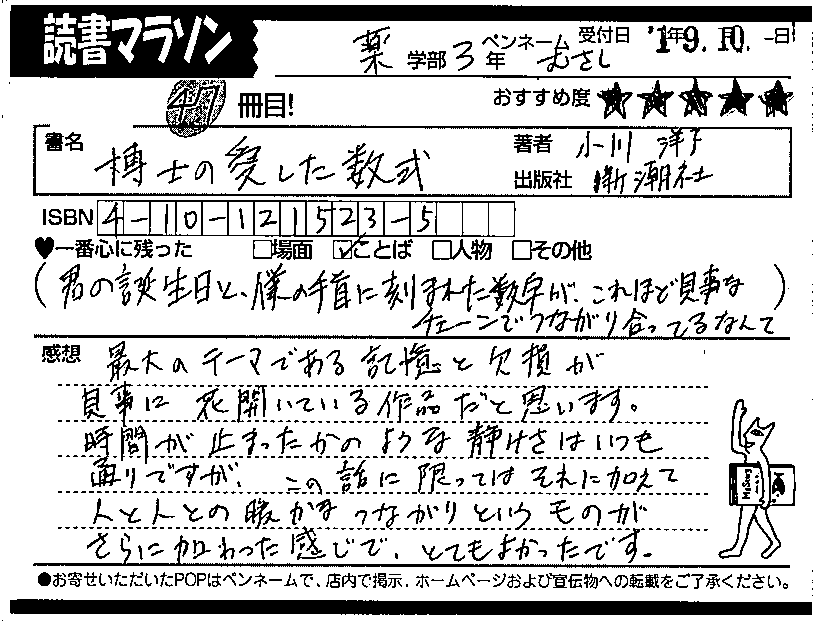 読書マラソン
薬 学部 3 年 ペンネーム むさし 受付日 '19年. 10月. 一日
47 冊目! おすすめ度 ★★★★★
書名 博士の愛した数式 著者 小川 洋子
出版社 新潮社
ISBN 4-10-121523-5
♥一番心に残った □場面 ☑ことば □人物 □その他
(君の誕生日と、僕の手首に刻まれた数字が、これほど見事な
チェーンでつながり合ってるなんて)
感想 最大のテーマである記憶と欠損が
見事に花開いている作品だと思います。
時間が止まったかのような静けさはいつも
通りですが、この話に限ってはそれに加えて
人と人との暖かなつながりというものが
さらに加わった感じで、とてもよかったです。
●お寄せいただいたPOPはペンネームで、店内で掲示、ホームページおよび宣伝物への転載をご了承ください。